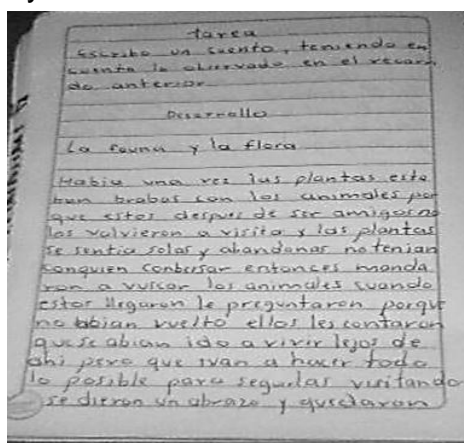 tarea
Escribo un cuento, teniendo en
cuenta lo observado en el recorri
do anterior
Desarrollo
La fauna y la flora
Habia una vez las plantas esta
ban brabas con los animales por
que estos despues de ser amigos no
las volvieron a visita y las plantas
se sentia solas y abandonas no tenian
conquien conbersar entonces manda
ron a vuscar los animales cuando
estos llegaron le preguntaron porque
no abian vuelto ellos les contaron
que se abian ido a vivir lejos de
ahi pero que ivan a hacer todo
lo posible para seguirlas visitando
se dieron un abrazo y quedaron